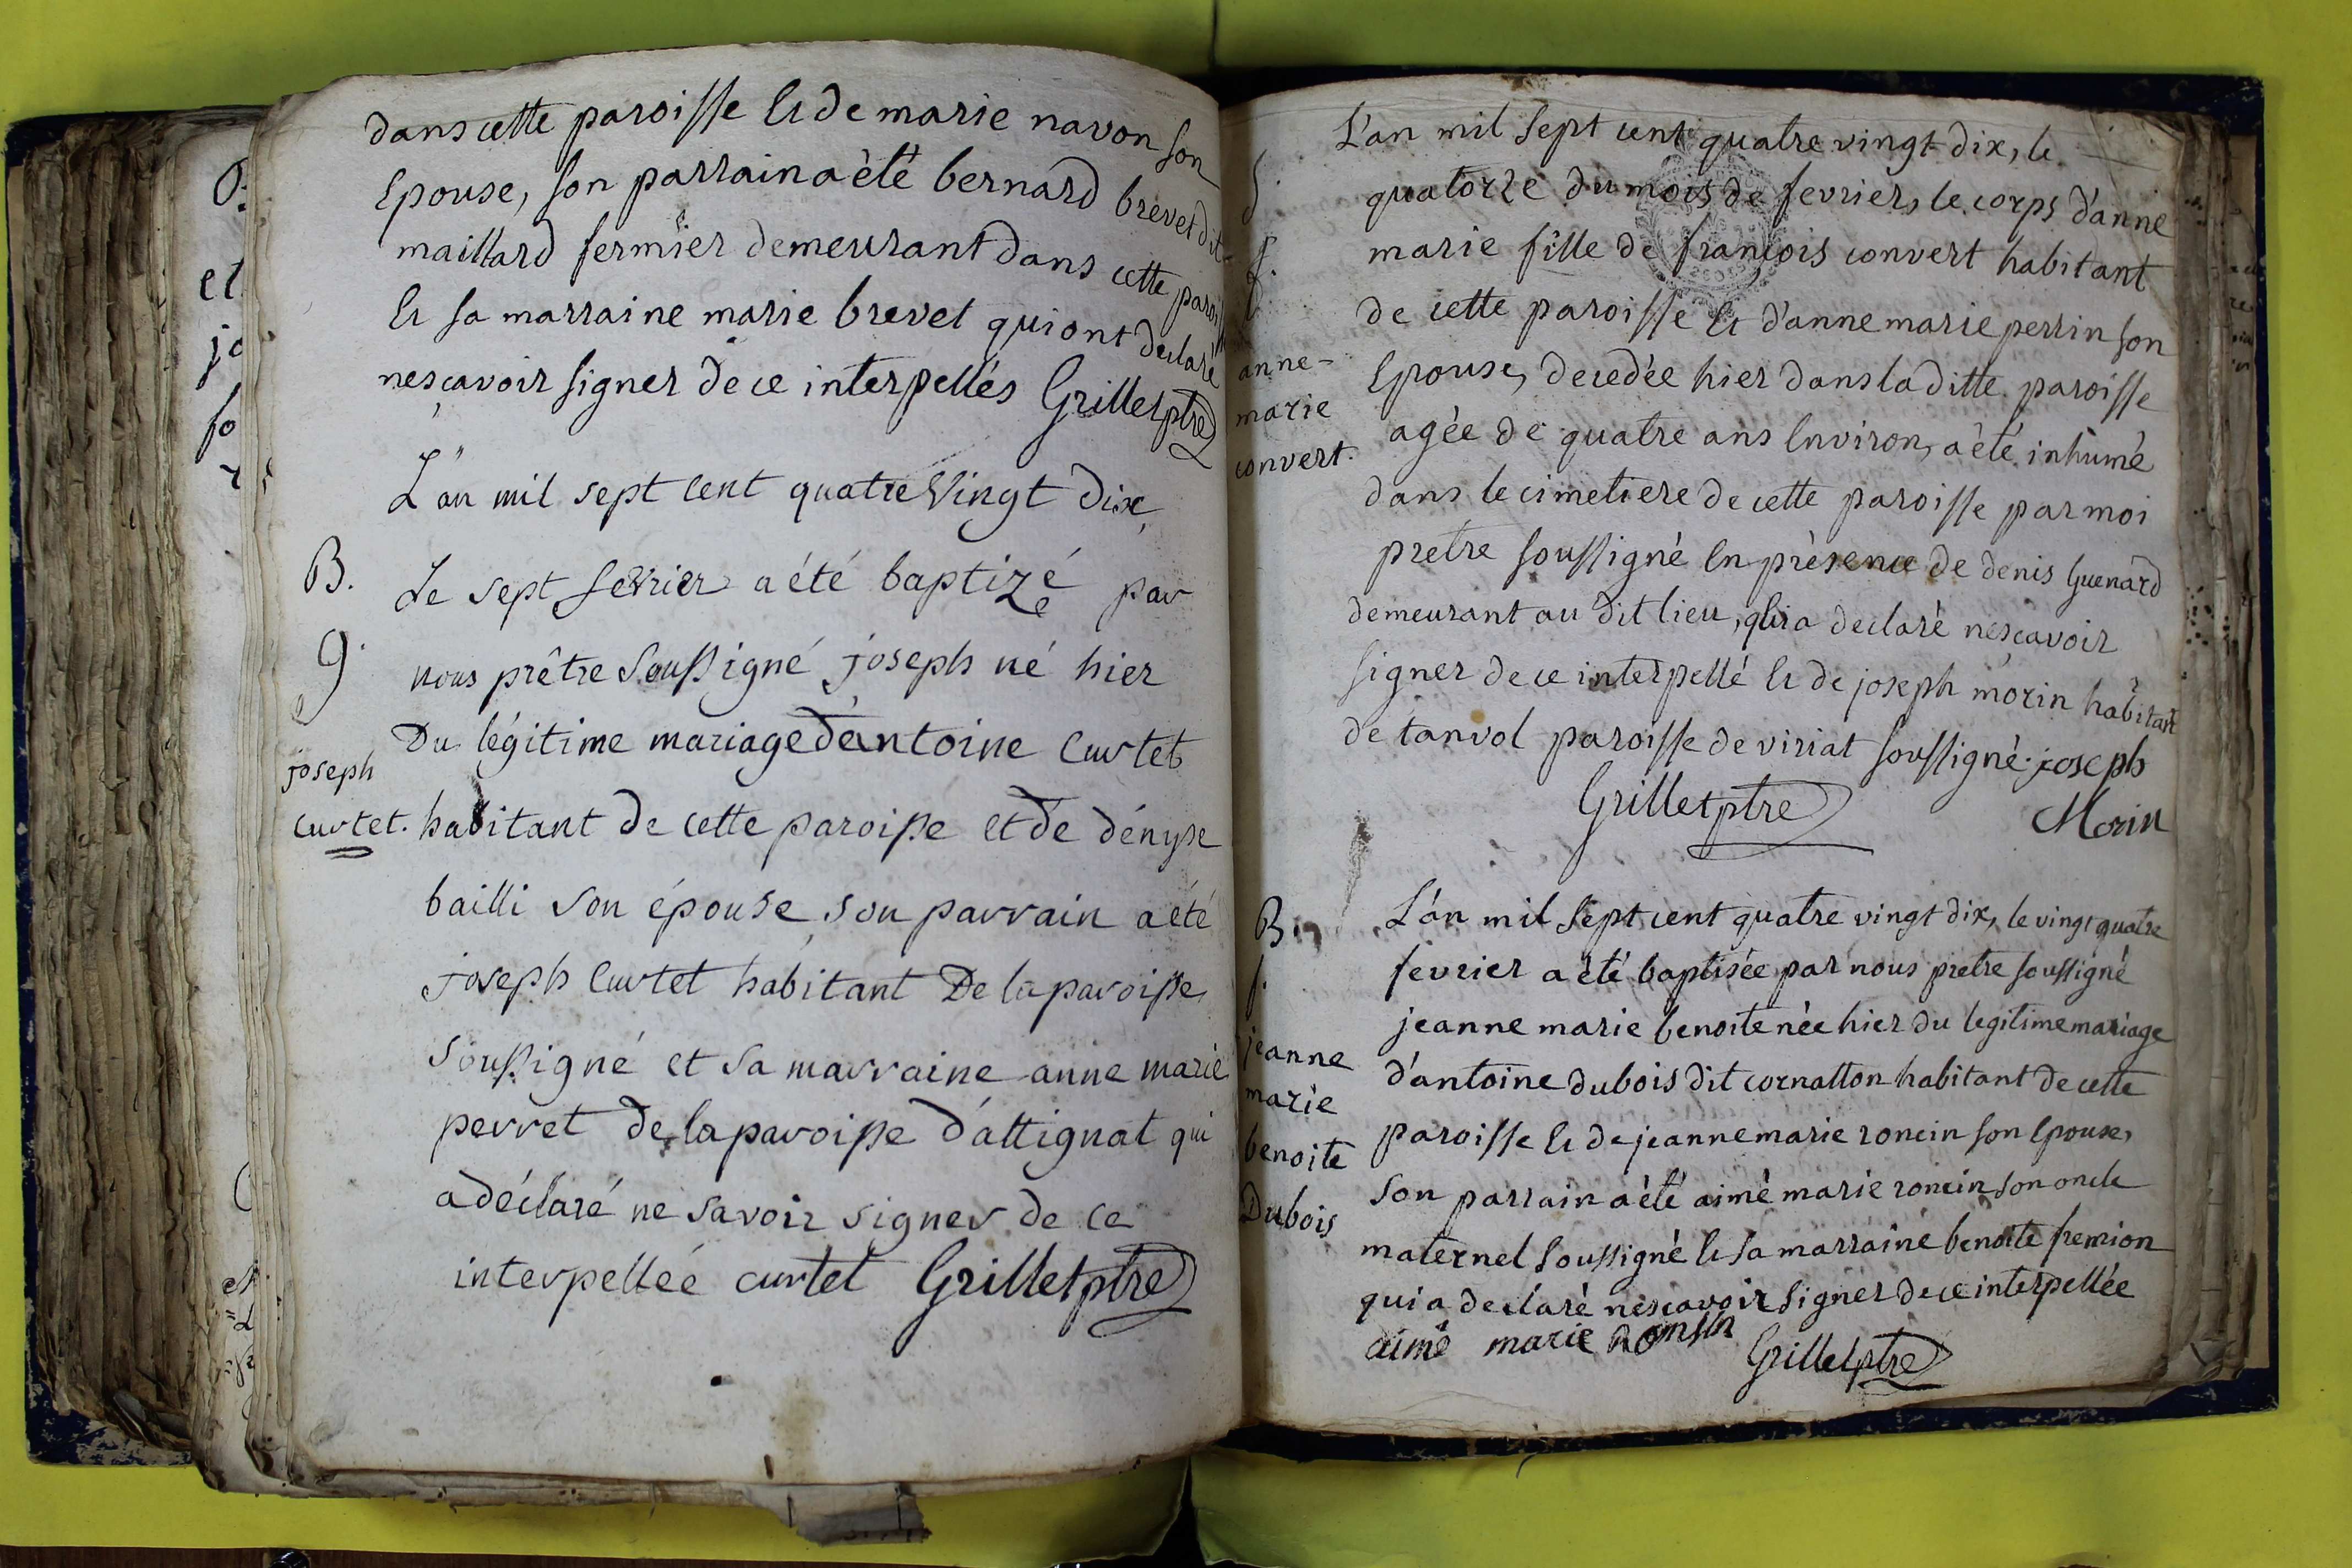 dans cette paroisse et de marie navon son
epouse, son parrain a èté bernard brevet dit
maillard fermier demeurant dans cette paroisse
et sa marraine marie brevet qui ont declaré
nesçavoir signer de ce interpellés Grillet ptre
L'an mil sept cent quatre Vingt dix
B. Le sept fevrier a été baptizé par
g. nous prêtre soussigné joseph né hier
Du légitime mariage d'antoine Curtet
joseph
curtet. habitant de cette paroisse et de dényse
bailli son épouse, son parrain a été
joseph Curtet habitant De la paroisse
soussigné et sa marraine anne marie
perret de la paroisse d'attignat qui
a déclaré ne savoir signer de ce
interpellée curtet Grillet ptre
L'an mil sept cent quatre vingt dix, le
quatorze du mois de fevrier, le corps d'anne
marie fille de françois convert habitant
de cette paroisse et d'anne marie perrin son
anne-
marie
convert.
epouse, decedée hier dans la ditte paroisse
agée de quatre ans environ, a èté inhumé
dans le cimetiere de cette paroisse par moi
pretre soussigné en prèsence de denis Guenard
demeurant au dit lieu, qui a declaré nesçavoir
signer de ce interpellé et de joseph morin habitant
de tanvol paroisse de viriat soussigné. joseph
Grillet ptre Morin
B. L'an mil sept cent quatre vingt dix, le vingt quatre
f. fevrier a èté baptisée par nous pretre soussigné
jeanne marie benoite née hier du legitime mariage
jeanne
marie
benoite
Dubois
d'antoine dubois dit cornatton habitant de cette
paroisse et de jeanne marie roncin son epouse,
son parrain a èté aimé marie roncin son oncle
maternel soussigné et sa marraine benoite fremion
qui a declaré nesçavoir signer de ce interpellée
aimé marie Romsin Grillet ptre